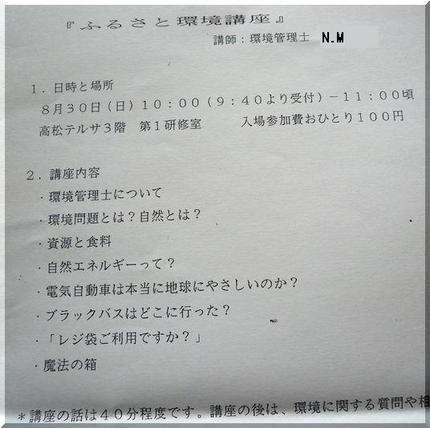 『ふるさと環境講座』
講師：環境管理士 N.M
１．日時と場所
８月３０日（日）１０：００（９：４０より受付）－１１：００頃
高松テルサ３階 第１研修室 入場参加費おひとり１００円
２．講座内容
・環境管理士について
・環境問題とは？自然とは？
・資源と食料
・自然エネルギーって？
・電気自動車は本当に地球にやさしいのか？
・ブラックバスはどこに行った？
・「レジ袋ご利用ですか？」
・魔法の箱
＊講座の話は４０分程度です。講座の後は、環境に関する質問や相